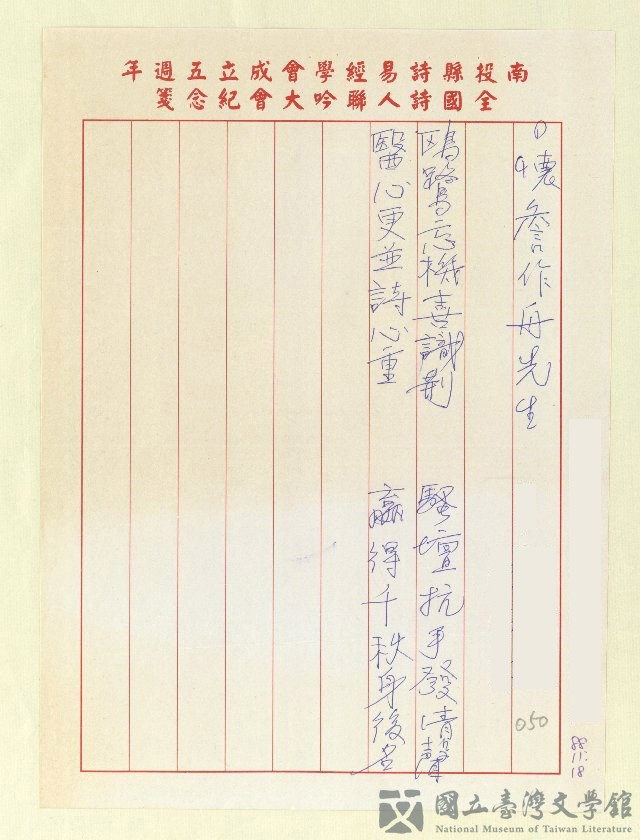 南投縣詩易經學會成立五週年
全國詩人聯吟大會紀念箋
懷詹作舟先生
鷗鷺忘機喜識荊 騷壇抗手發清聲
醫心更並詩心重 贏得千秋身後名
050
88.11.18
國立臺灣文學館
National Museum of Taiwan Literature